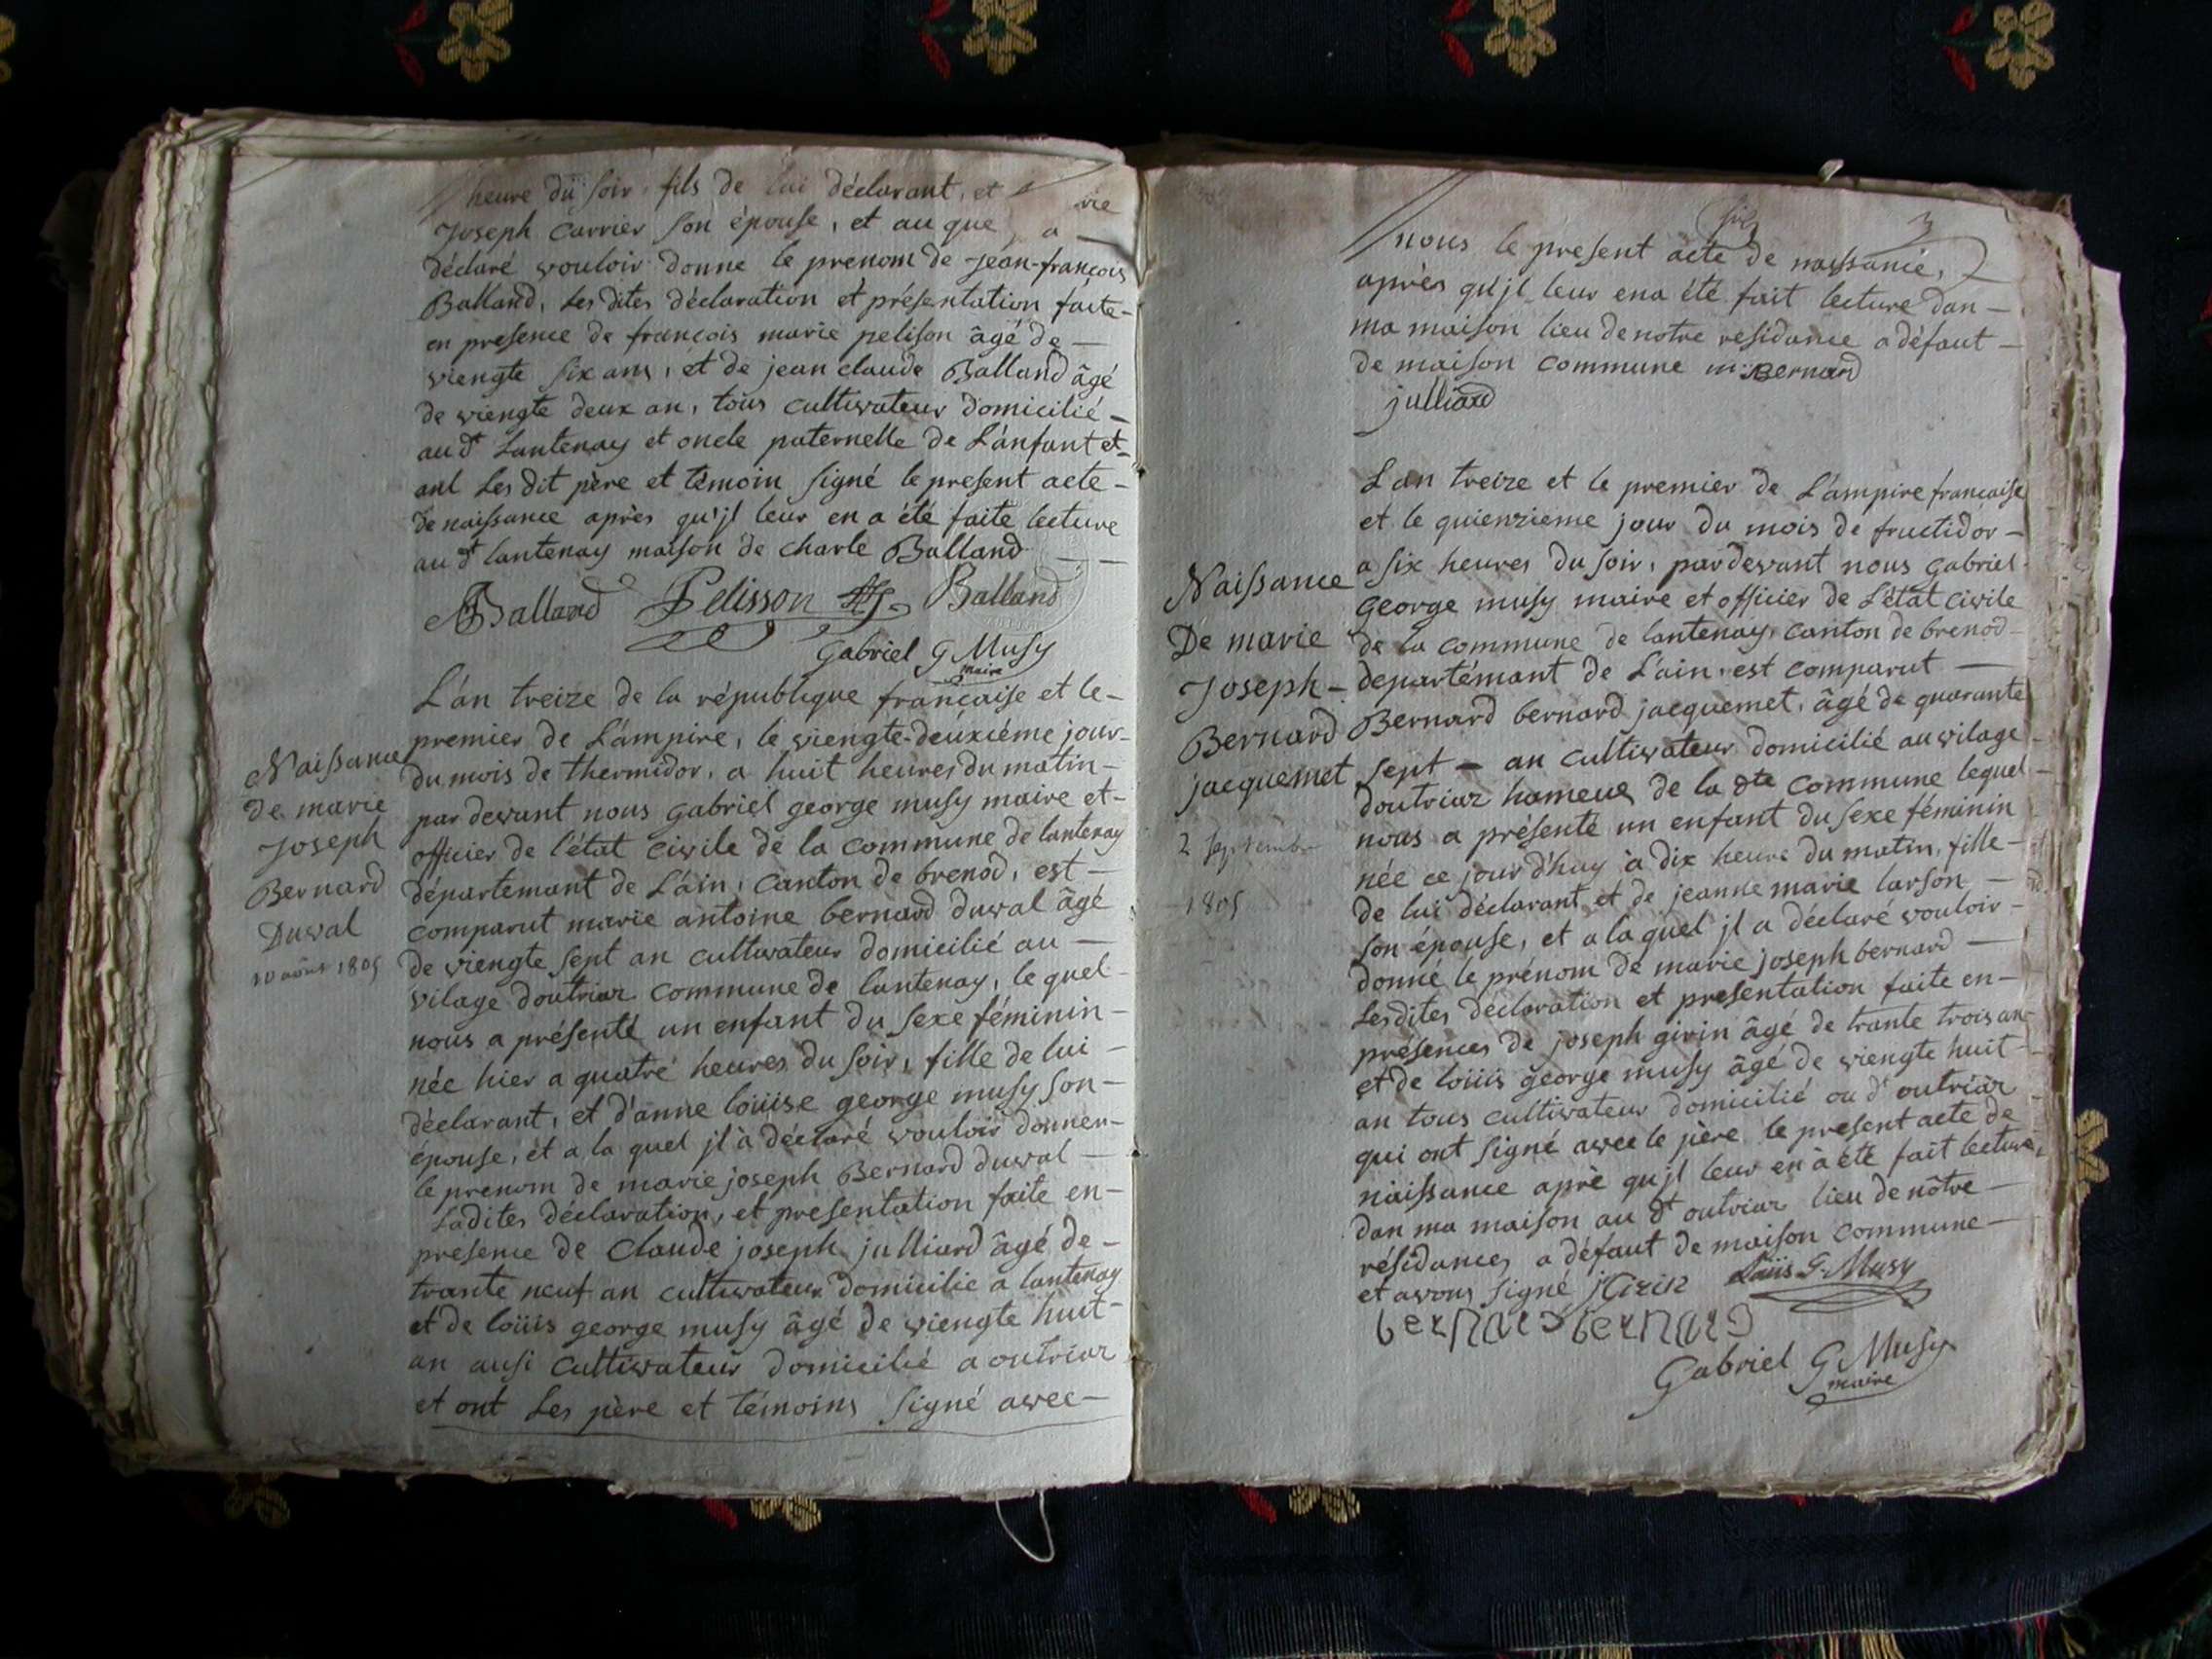 heure du soir, fils de lui déclarant, et
rie
Joseph Carrier son épouse, et au que a
déclaré vouloir donne le prenom de jean-francois
Balland, Les dites déclaration et présentation faite
en presence de francois marie pelison âgé de
viengte six ans, et de jean claude Balland âgé
de viengte deux an, tous cultivateur domicilié
au dt Lantenay et oncle paternelle de L'anfant et
ant Les dit père et témoin signé le present acte
de naissance après qu'jl leur en a été faite lecture
au dt lantenay maison de charle Balland
Balland Pelisson Balland
Gabriel G Musy
maire
L'an treize de la république française et le
premier de L'ampire, le viengte-deuxiéme jour
du mois de thermidor, a huit heures du matin
par devant nous gabriel george musy maire et
officier de l'état civile de la commune de lantenay
département de L'ain, canton de brenod, est
comparut marie antoine bernard duval âgé
de viengte sept an cultivateur domicilié au
vilage doutriaz commune de lantenay, le quel
nous a présenté un enfant du sexe féminin
née hier a quatre heures du soir, fille de lui
déclarant, et d'anne loüise george musy son
épouse, et a la quel jl à déclaré vouloir donner
le prenom de marie joseph Bernard duval
Ladites déclaration, et presentation faite en
presence de Claude joseph julliard âgé de
trante neuf an cultivateur domicilie a lantenay
et de loüis george musy âgé de viengte huit
an ausi cultivateur domicilié a outriaz
et ont Les père et témoins signé avec
Naissance
de marie
Joseph
Bernard
Duval
10 août 1805
3
nous le present acte de naissance,
après qu'jl leur ena été fait lecture dan
ma maison lieu de notre residance a défaut
de maison commune m: Bernard
julliard
L'an treize et le premier de L'ampire francaise
et le quienzieme jour du mois de fructidor
a six heures du soir, pardevant nous gabriel
george musy maire et officier de L'état civile
de la commune de lantenay, canton de brenod
departémant de L'ain, est comparut
Bernard bernard jacquemet, âgé de quarante
sept an cultivateur domicilié au vilage
doutriaz hameue de la dte commune lequel
nous a présenté un enfant du sexe féminin
née ce jour d'huy à dix heure du matin, fille
de lui déclarant et de jeanne marie larson
son épouse, et a la quel jl a déclaré vouloir
donné le prénom de marie joseph bernard
Lesdites déclaration et presentation faite en
présences de joseph girin âgé de trante trois an
et de loüis george musy âgé de viengte huit
an tous cultivateur domicilié au dt outriaz
qui ont signé avec le père le present acte de
naissance apre qu'jl leur en à été fait lecture
dan ma maison au dt outriaz lieu de nôtre
résidances a défaut de maison commune
et avons signé jGirin Loüis G. Musy
bernard bernard
Gabriel G Musy
maire
Naissance
De marie
Joseph
Bernard
jacquemet
2 septembre
1805